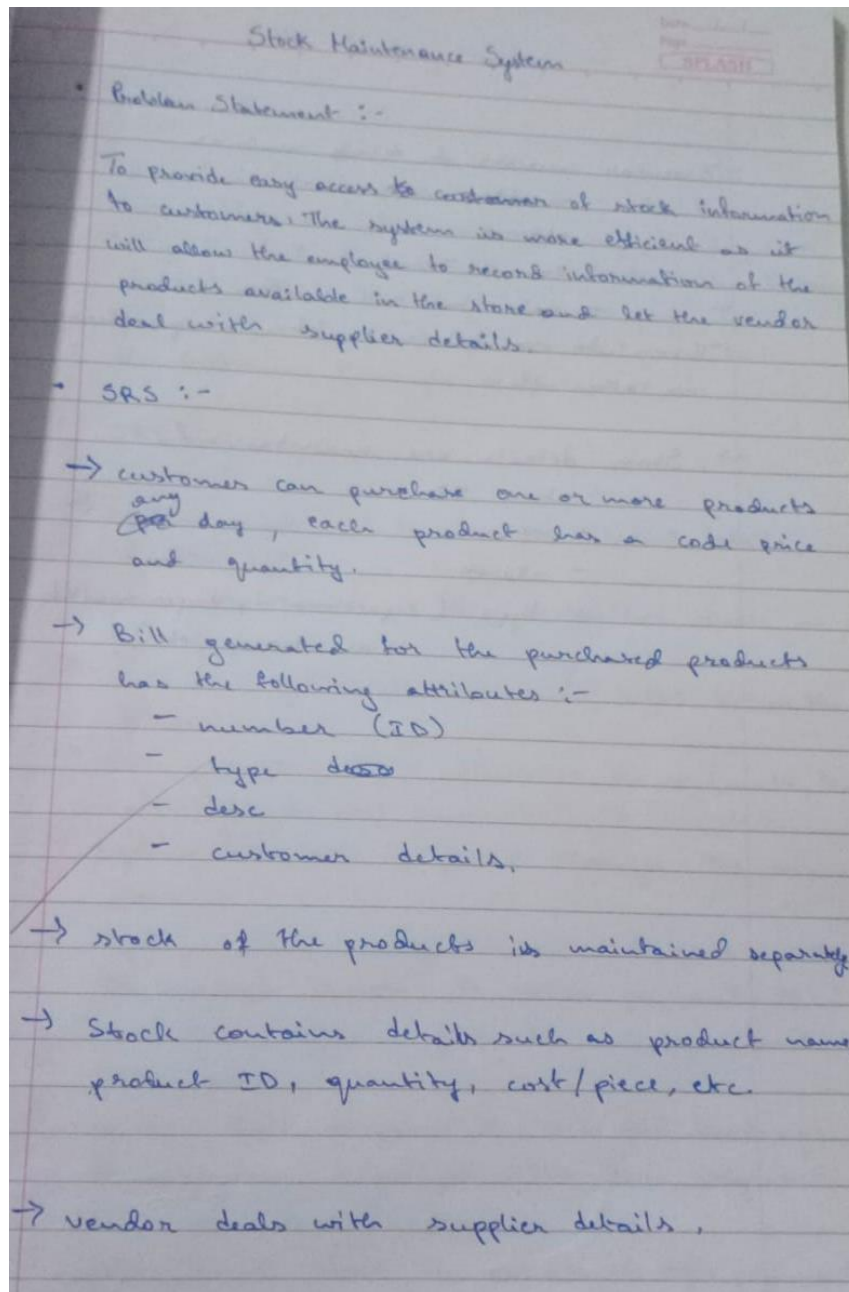 Date
Page
SPLASH
Stock Maintenance System
• Problem Statement :-
To provide easy access to of stock information
to customers. The system is more efficient as it
will allow the employee to record information of the
products available in the store and let the vendor
deal with supplier details.
• SRS :-
→ customer can purchase one or more products
any
day, each product has a code price
and quantity.
→ Bill generated for the purchased products
has the following attributes :-
- number (ID)
- type
- desc
- customer details.
→ stock of the products is maintained separately
→ Stock contains details such as product name
product ID, quantity, cost/piece, etc.
→ vendor deals with supplier details.